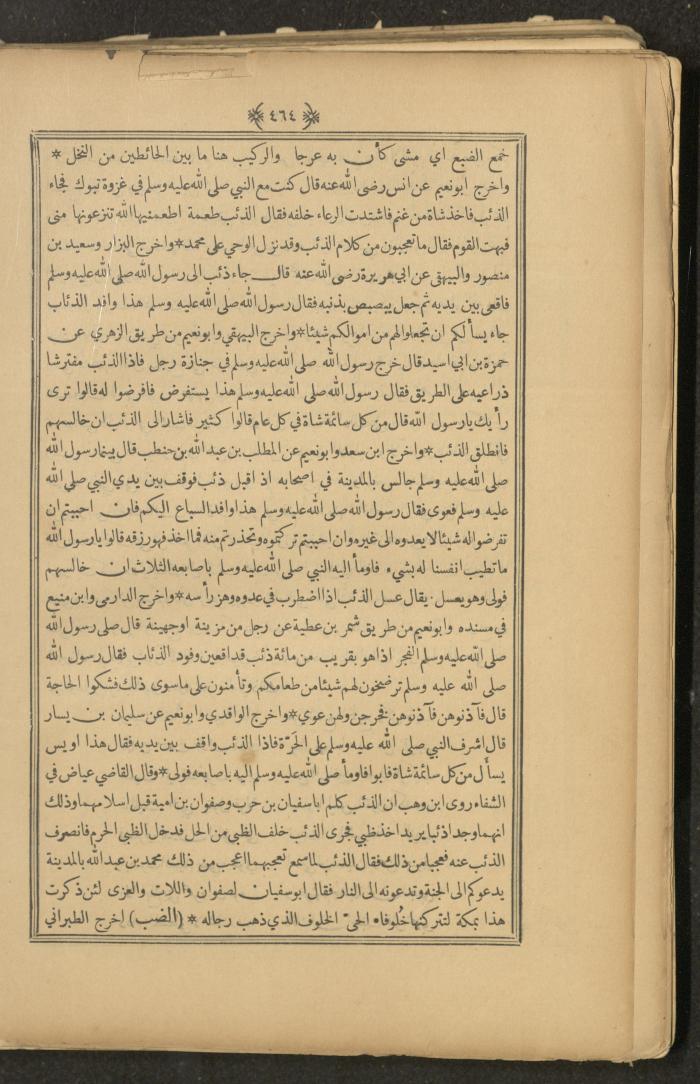 ٤٦٤
خمع الضبع اي مشى كأن به عرجا والركيب هنا ما بين الحائطين من النخل *
واخرج ابونعيم عن انس رضى الله عنه قال كنت مع النبي صلى الله عليه وسلم في غزوة تبوك فجاء
الذئب فاخذ شاة من غنم فاشتدت الرعاء خلفه فقال الذئب طعمة اطعمنيها الله تنزعونها منى
فبهت القوم فقال ما تعجبون من كلام الذئب وقد نزل الوحي على محمد * واخرج البزار وسعيد بن
منصور والبيهقى عن ابي هريرة رضى الله عنه قال جاء ذئب الى رسول الله صلى الله عليه وسلم
فاقعى بين يديه ثم جعل يبصبص بذنبه فقال رسول الله صلى الله عليه وسلم هذا وافد الذئاب
جاء يسألكم ان تجعلوا لهم من اموالكم شيئا * واخرج البيهقي وابونعيم من طريق الزهري عن
حمزة بن ابي اسيد قال خرج رسول الله صلى الله عليه وسلم في جنازة رجل فاذا الذئب مفترشا
ذراعيه على الطريق فقال رسول الله صلى الله عليه وسلم هذا يستفرض فافرضوا له قالوا ترى
رأيك يا رسول الله قال من كل سائمة شاة في كل عام قالوا كثير فاشار الى الذئب ان خالسهم
فانطلق الذئب * واخرج ابن سعد وابونعيم عن المطلب بن عبد الله بن حنطب قال بينما رسول الله
صلى الله عليه وسلم جالس بالمدينة في اصحابه اذ اقبل ذئب فوقف بين يدي النبي صلى الله
عليه وسلم فعوى فقال رسول الله صلى الله عليه وسلم هذا وافد السباع اليكم فان احببتم ان
تفرضوا له شيئا لا يعدوه الى غيره وان احببتم تركتموه وتحذرتم منه فما اخذ فهو رزقه قالوا يا رسول الله
ما تطيب انفسنا له بشيء فاومأ اليه النبي صلى الله عليه وسلم باصابعه الثلاث ان خالسهم
فولى وهو يعسل . يقال عسل الذئب اذا اضطرب في عدوه وهز رأسه * واخرج الدارمى وابن منيع
في مسنده وابونعيم من طريق شمر بن عطية عن رجل من مزينة او جهينة قال صلى رسول الله
صلى الله عليه وسلم الفجر اذا هو بقريب من مائة ذئب قد اقعين وفود الذئاب فقال رسول الله
صلى الله عليه وسلم ترضخون لهم شيئا من طعامكم وتأمنون على ما سوى ذلك فشكوا الحاجة
قال فآذنوهن فآذنوهن فخرجن ولهن عوي * واخرج الواقدي وابونعيم عن سليمان بن يسار
قال اشرف النبي صلى الله عليه وسلم على الحَرّة فاذا الذئب واقف بين يديه فقال هذا اويس
يسأل من كل سائمة شاة فابوا فاومأ صلى الله عليه وسلم اليه باصابعه فولى * وقال القاضي عياض في
الشفاء روى ابن وهب ان الذئب كلم ابا سفيان بن حرب وصفوان بن امية قبل اسلامهما وذلك
انهما وجدا ذئبا يريد اخذ ظبي فجرى الذئب خلف الظبي من الحل فدخل الظبي الحرم فانصرف
الذئب عنه فعجبا من ذلك فقال الذئب لما سمع تعجبهما اعجب من ذلك محمد بن عبد الله بالمدينة
يدعوكم الى الجنة وتدعونه الى النار فقال ابو سفيان لصفوان واللات والعزى لئن ذكرت
هذا بمكة لتتركنها خُلُوفا * الحىّ الخلوف الذي ذهب رجاله * (الضب) اخرج الطبراني